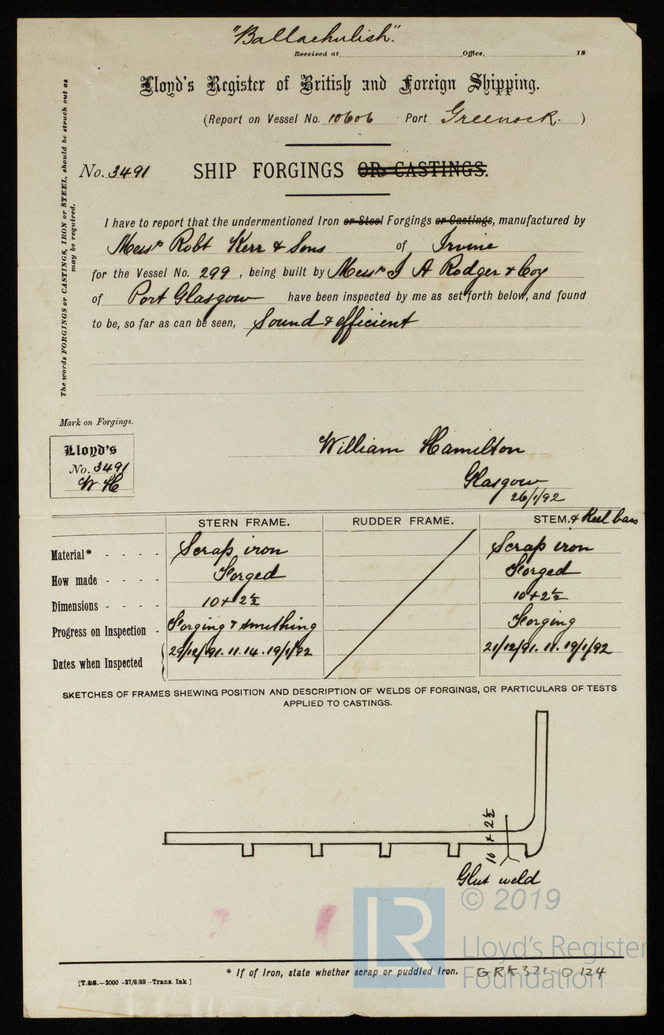 "Ballachulish".
Received at Office, 18
Lloyd's Register of British and Foreign Shipping.
(Report on Vessel No. 10606 Port Greenock. )
No. 3491 SHIP FORGINGS OR CASTINGS.
The words FORGINGS or CASTINGS, IRON or STEEL, should be struck out as
may be required.
I have to report that the undermentioned Iron or Steel Forgings or Castings, manufactured by
Messrs Robt Kerr & Sons of Irvine
for the Vessel No. 299, being built by Messrs J A Rodger & Coy
of Port Glasgow have been inspected by me as set forth below, and found
to be, so far as can be seen, Sound & efficient
Mark on Forgings.
Lloyd's
No. 3491
W H
William Hamilton
Glasgow
26/1/92
STERN FRAME. RUDDER FRAME. STEM. & Keel bars
Material* - - - - Scrap iron Scrap iron
How made - - - - Forged Forged
Dimensions - - - - 10 + 2½ 10 + 2½
Progress on Inspection - Forging & smithing Forging
Dates when Inspected 29/12/91. 11. 14. 19/1/92 21/12/91. 11. 19/1/92
SKETCHES OF FRAMES SHEWING POSITION AND DESCRIPTION OF WELDS OF FORGINGS, OR PARTICULARS OF TESTS
APPLIED TO CASTINGS.
10 + 2½
Glut weld
© 2019
LR
Lloyd's Register
Foundation
* If of Iron, state whether scrap or puddled Iron.
[T.&S.—2000—27/9/89—Trans. Ink]